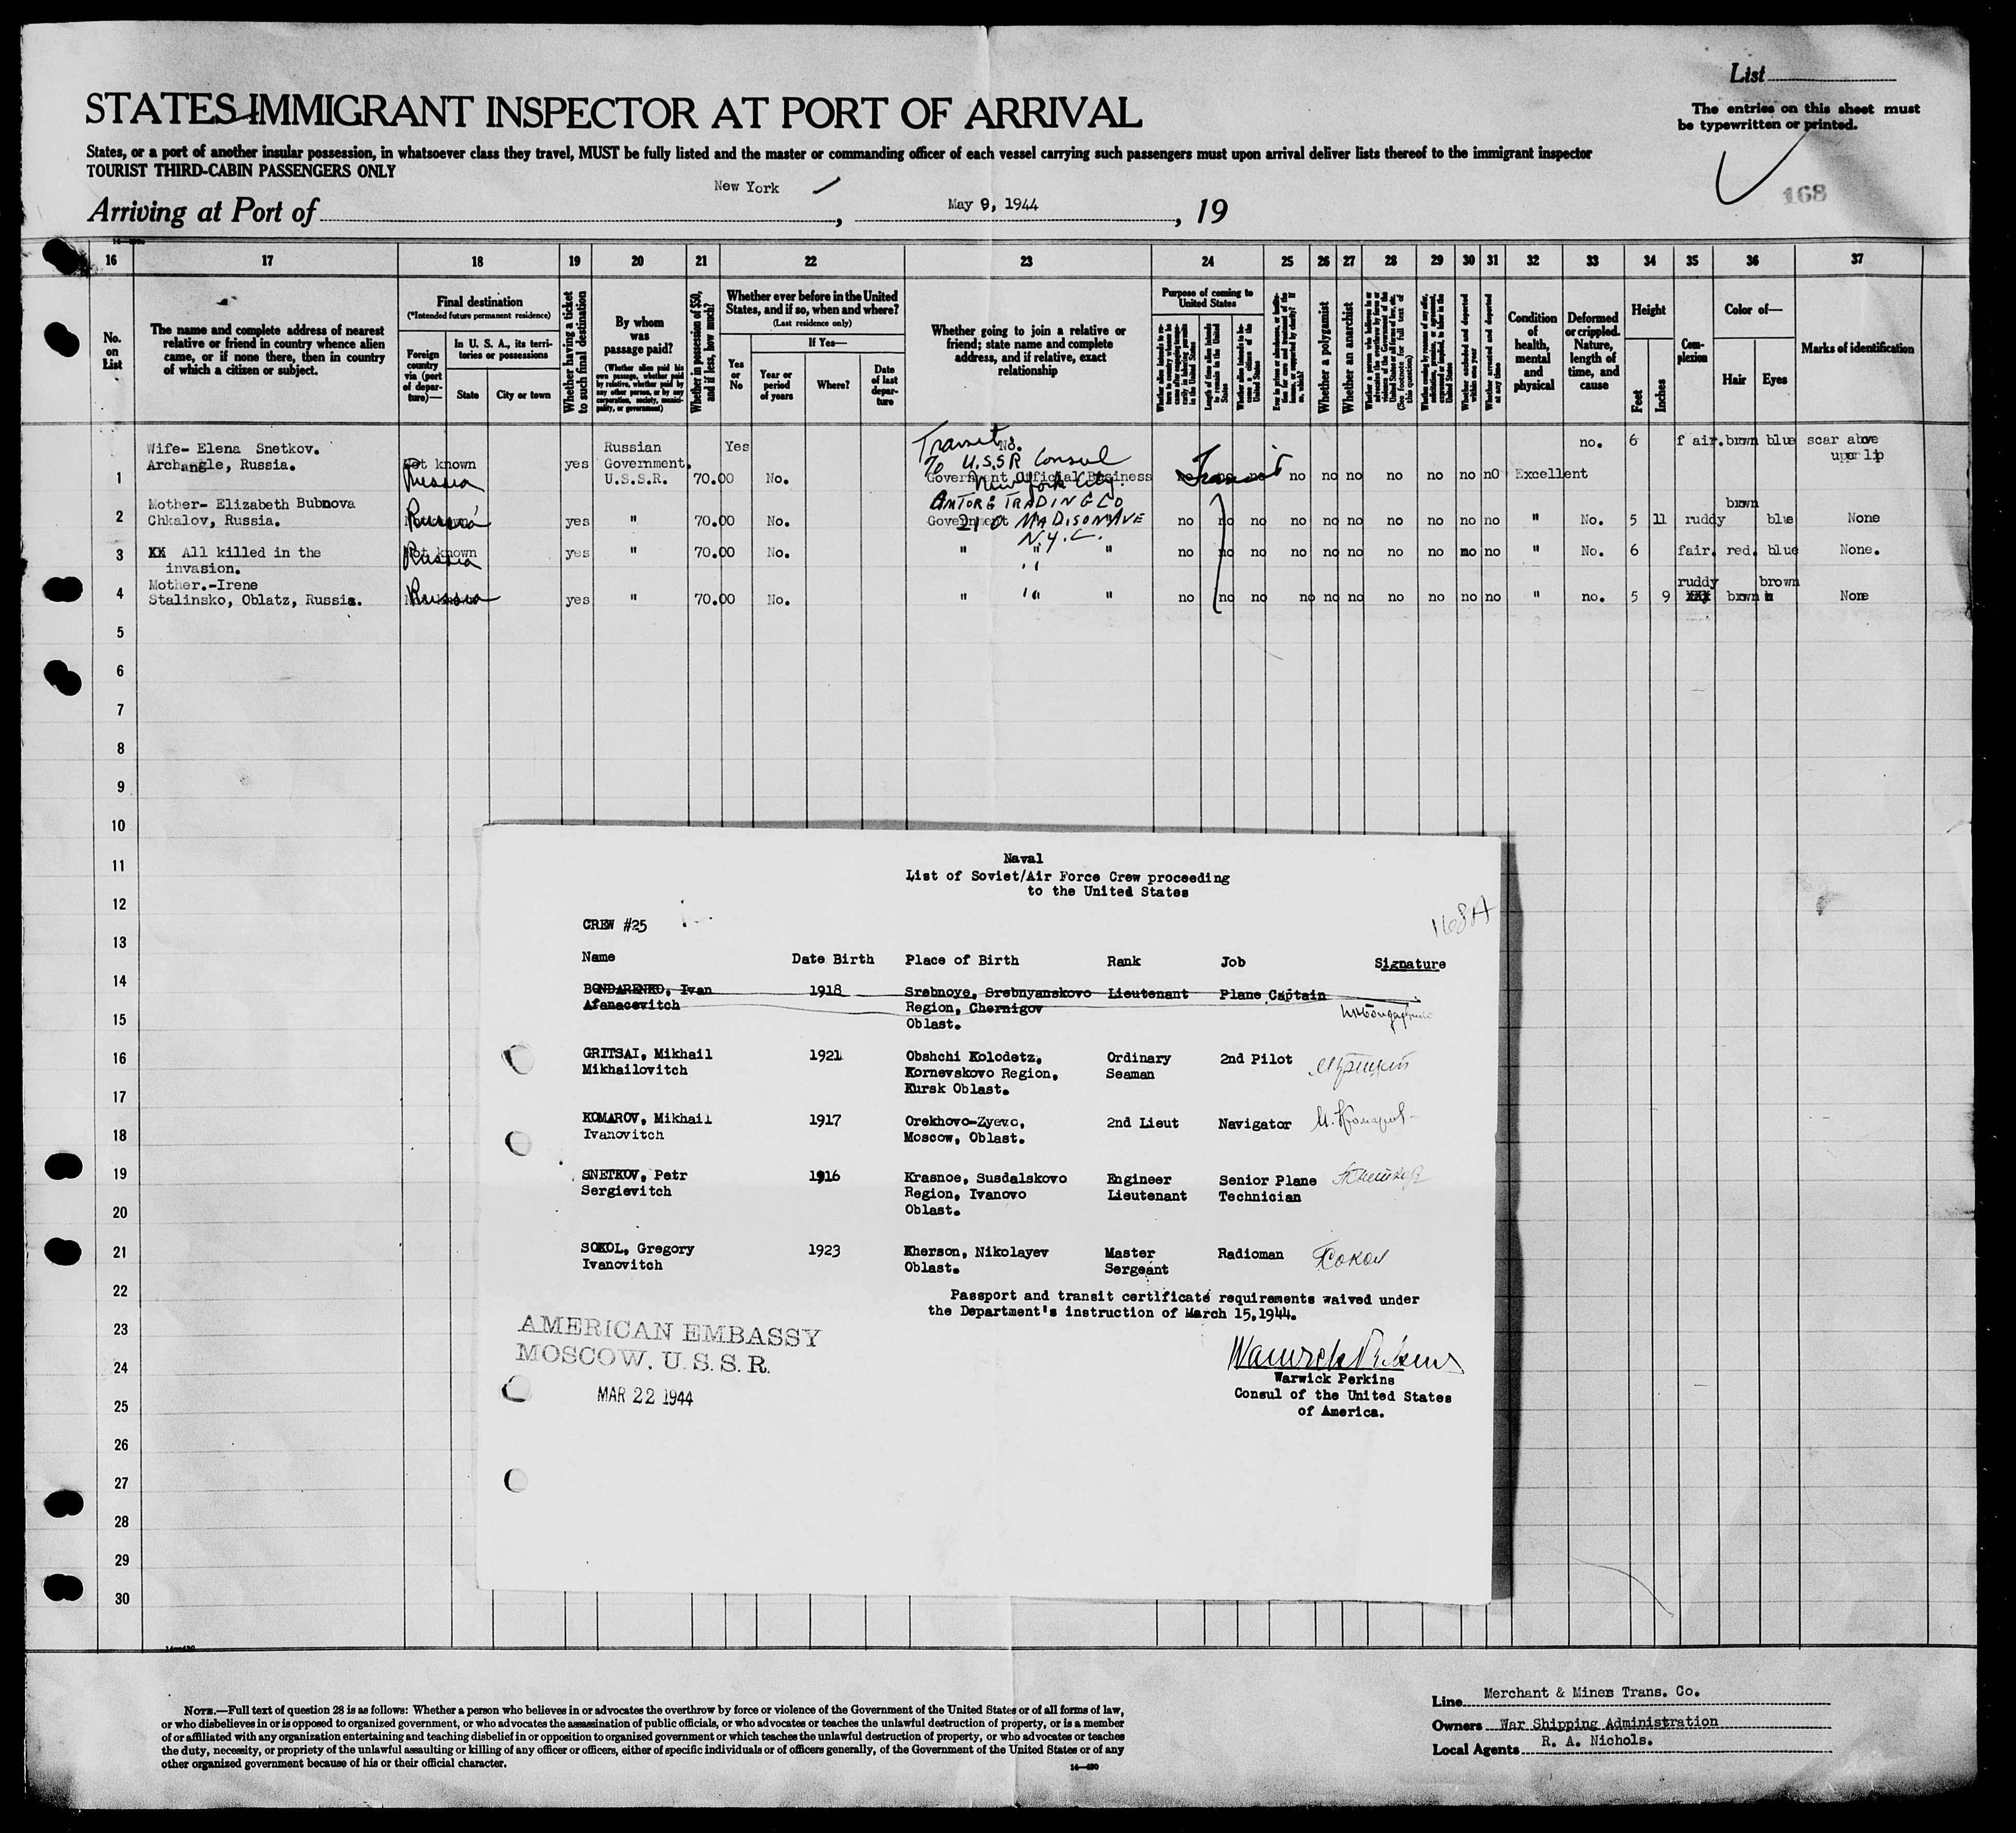 List
The entries on this sheet must
be typewritten or printed.
STATES IMMIGRANT INSPECTOR AT PORT OF ARRIVAL
States, or a port of another insular possession, in whatsoever class they travel, MUST be fully listed and the master or commanding officer of each vessel carrying such passengers must upon arrival deliver lists thereof to the immigrant inspector
TOURIST THIRD-CABIN PASSENGERS ONLY
168
Arriving at Port of New York, May 9, 1944, 19
16 17 18 19 20 21 22 23 24 25 26 27 28 29 30 31 32 33 34 35 36 37
No. on List
The name and complete address of nearest
relative or friend in country whence alien
came, or if none there, then in country
of which a citizen or subject.
Final destination
(*Intended future permanent residence)
Foreign country via (port of departure)—
In U. S. A., its territories or possessions
State
City or town
Whether having a ticket to such final destination
By whom was passage paid?
(Whether alien paid his own passage, whether paid by relative, whether paid by any other person, or by any corporation, society, municipality, or government)
Whether in possession of $50, and if less, how much?
Whether ever before in the United States, and if so, when and where?
(Last residence only)
Yes or No
If Yes—
Year or period of years
Where?
Date of last departure
Whether going to join a relative or
friend; state name and complete
address, and if relative, exact
relationship
Purpose of coming to United States
Whether a polygamist
Whether an anarchist
Condition of health, mental and physical
Deformed or crippled. Nature, length of time, and cause
Height
Feet
Inches
Complexion
Color of—
Hair
Eyes
Marks of identification
1 Wife- Elena Snetkov.
Archangle, Russia. Not known Russia yes Russian Government. U.S.S.R. 70.00 Yes No. Transit No. To U.S.S.R Consul New York City. Government Official Business Transit no no no no no no nO Excellent no. 6 fair. brown blue scar above upper lip
2 Mother- Elizabeth Bubnova
Chkalov, Russia. Russia yes " 70.00 No. AMTORG TRADING CO Government 210 MADISON AVE N.Y.C. no no no no no no no no no no " No. 5 11 ruddy brown blue None
3 XX All killed in the
invasion. Not known Russia yes " 70.00 No. " " " no no no no no no no no no no " No. 6 fair. red. blue None.
4 Mother.-Irene
Stalinsko, Oblatz, Russia. Russia yes " 70.00 No. " " " no no no no no no no no no no " no. 5 9 ruddy brown brown None
5
6
7
8
9
10
11
12
13
14
15
16
17
18
19
20
21
22
23
24
25
26
27
28
29
30
Naval
List of Soviet/Air Force Crew proceeding
to the United States
168A
CREW #25
Name Date Birth Place of Birth Rank Job Signature
BONDARENKO, Ivan 1918 Srebnoye, Srebnyanskovo Lieutenant Plane Captain
Afanacevitch Region, Chernigov
Oblast.
GRITSAI, Mikhail 1921 Obshchi Kolodetz, Ordinary 2nd Pilot
Mikhailovitch Kornevskovo Region, Seaman
Kursk Oblast.
KOMAROV, Mikhail 1917 Orekhovo-Zyevo, 2nd Lieut Navigator М. Комаров
Ivanovitch Moscow, Oblast.
SNETKOV, Petr 1916 Krasnoe, Susdalskovo Engineer Senior Plane
Sergievitch Region, Ivanovo Lieutenant Technician
Oblast.
SOKOL, Gregory 1923 Kherson, Nikolayev Master Radioman Сокол
Ivanovitch Oblast. Sergeant
Passport and transit certificate requirements waived under
the Department's instruction of March 15,1944.
AMERICAN EMBASSY
MOSCOW, U.S.S.R.
MAR 22 1944
Warwick Perkins
Warwick Perkins
Consul of the United States
of America.
NOTE.—Full text of question 28 is as follows: Whether a person who believes in or advocates the overthrow by force or violence of the Government of the United States or of all forms of law,
or who disbelieves in or is opposed to organized government, or who advocates the assassination of public officials, or who advocates or teaches the unlawful destruction of property, or is a member
of or affiliated with any organization entertaining and teaching disbelief in or opposition to organized government or which teaches the unlawful destruction of property, or who advocates or teaches
the duty, necessity, or propriety of the unlawful assaulting or killing of any officer or officers, either of specific individuals or of officers generally, of the Government of the United States or of any
other organized government because of his or their official character.
14—430
Line Merchant & Miners Trans. Co.
Owners War Shipping Administration
Local Agents R. A. Nichols.